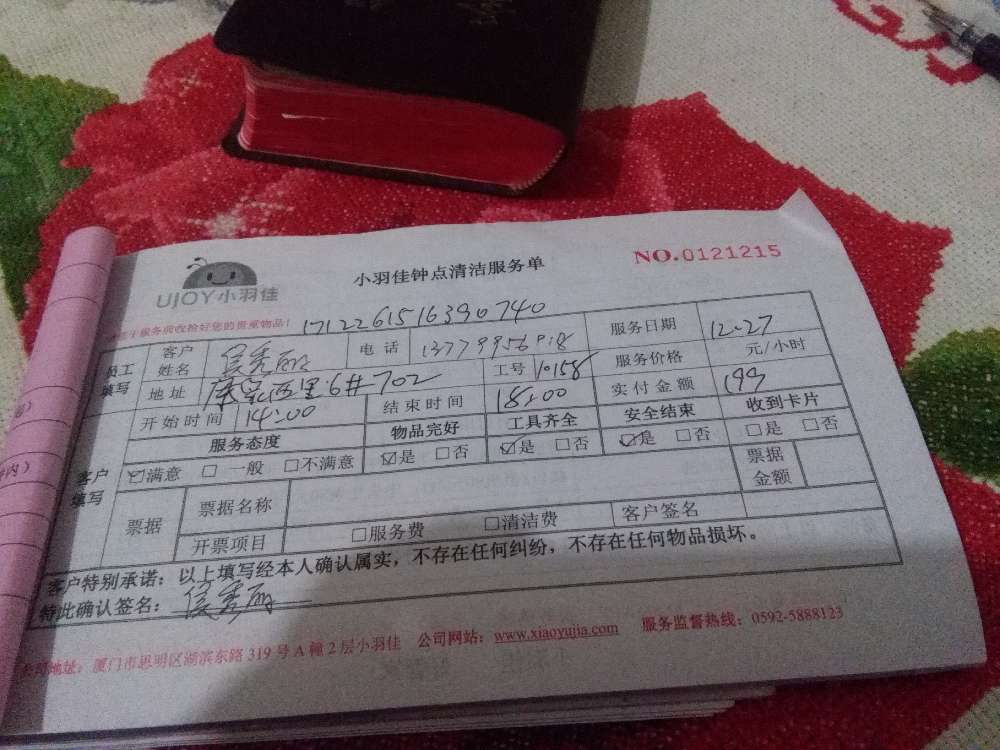 UJOY小羽佳
小羽佳钟点清洁服务单
NO.0121215
服务前收捡好您的贵重物品!
1712261516390740
员工填写
客户姓名
电话
服务日期 12-27
地址 6# 702
工号 10158
服务价格 元/小时
开始时间 14:00
结束时间 18:00
实付金额 199
服务态度 物品完好 工具齐全 安全结束 收到卡片
客户填写
☑满意 □ 一般 □不满意 ☑是 □否 ☑是 □否 ☑是 □否 □是 □否
票据 票据名称 票据金额
开票项目 □服务费 □清洁费 客户签名
客户特别承诺:以上填写经本人确认属实,不存在任何纠纷,不存在任何物品损坏。
特此确认签名:
公司地址:厦门市思明区湖滨东路319号A幢2层小羽佳 公司网站:www.xiaoyujia.com 服务监督热线:0592-5888123